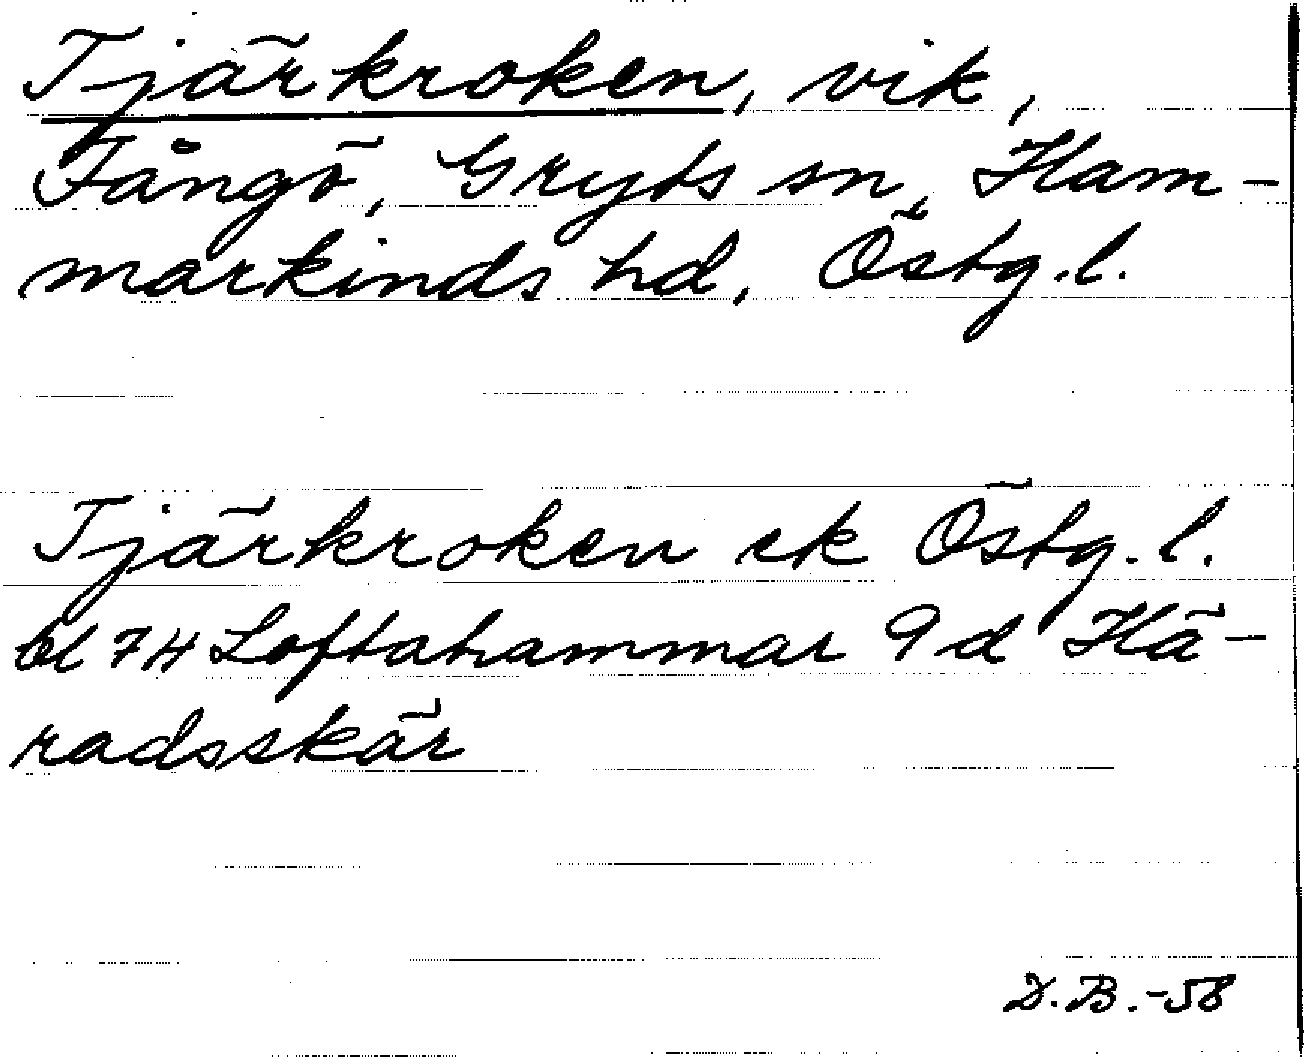 Tjärkroken, vik,
Fångö, Gryts sn, Ham-
markinds hd, Östg.l.
Tjärkroken ek Östg.l.
bl 7H Loftahammar 9d Hä-
radsskär
D.B.-58